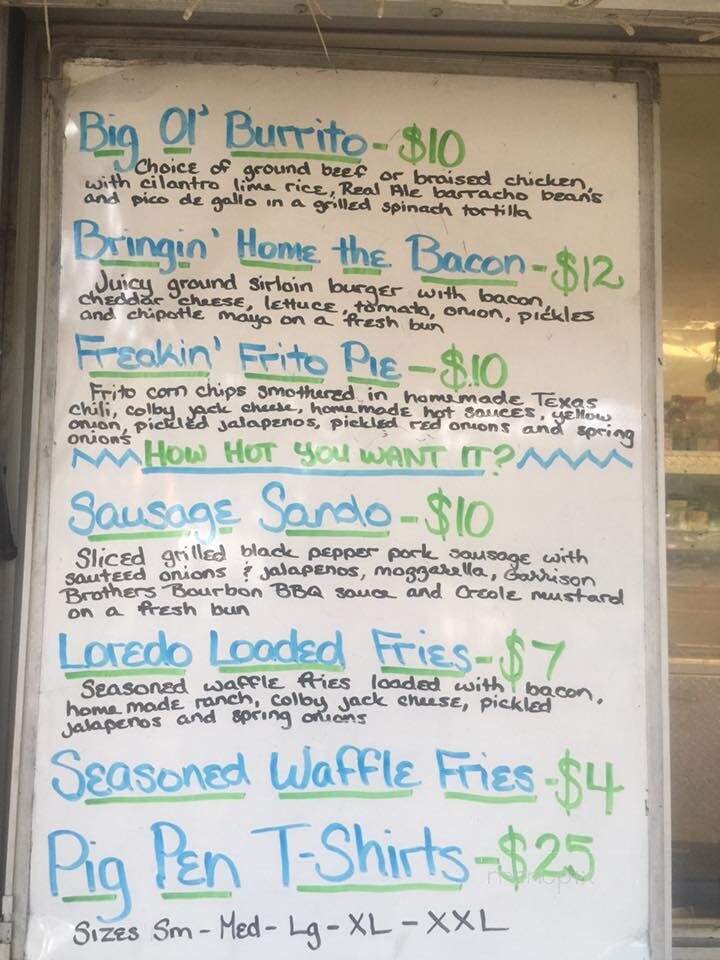 Big Ol' Burrito - $10
Choice of ground beef or braised chicken,
with cilantro lime rice, Real Ale barracho beans
and pico de gallo in a grilled spinach tortilla
Bringin' Home the Bacon - $12
Juicy ground sirloin burger with bacon,
cheddar cheese, lettuce, tomato, onion, pickles
and chipotle mayo on a fresh bun
Freakin' Frito Pie - $10
Frito corn chips smothered in homemade Texas
chili, colby jack cheese, homemade hot sauces, yellow
onion, pickled jalapenos, pickled red onions and spring
onions
HOW HOT YOU WANT IT?
Sausage Sando - $10
Sliced grilled black pepper pork sausage with
sauteed onions & jalapenos, mozzarella, Garrison
Brothers Bourbon BBQ sauce and Creole mustard
on a fresh bun
Loredo Loaded Fries - $7
Seasoned waffle fries loaded with bacon,
home made ranch, colby jack cheese, pickled
jalapenos and spring onions
Seasoned Waffle Fries - $4
Pig Pen T-Shirts - $25
Sizes Sm - Med - Lg - XL - XXL